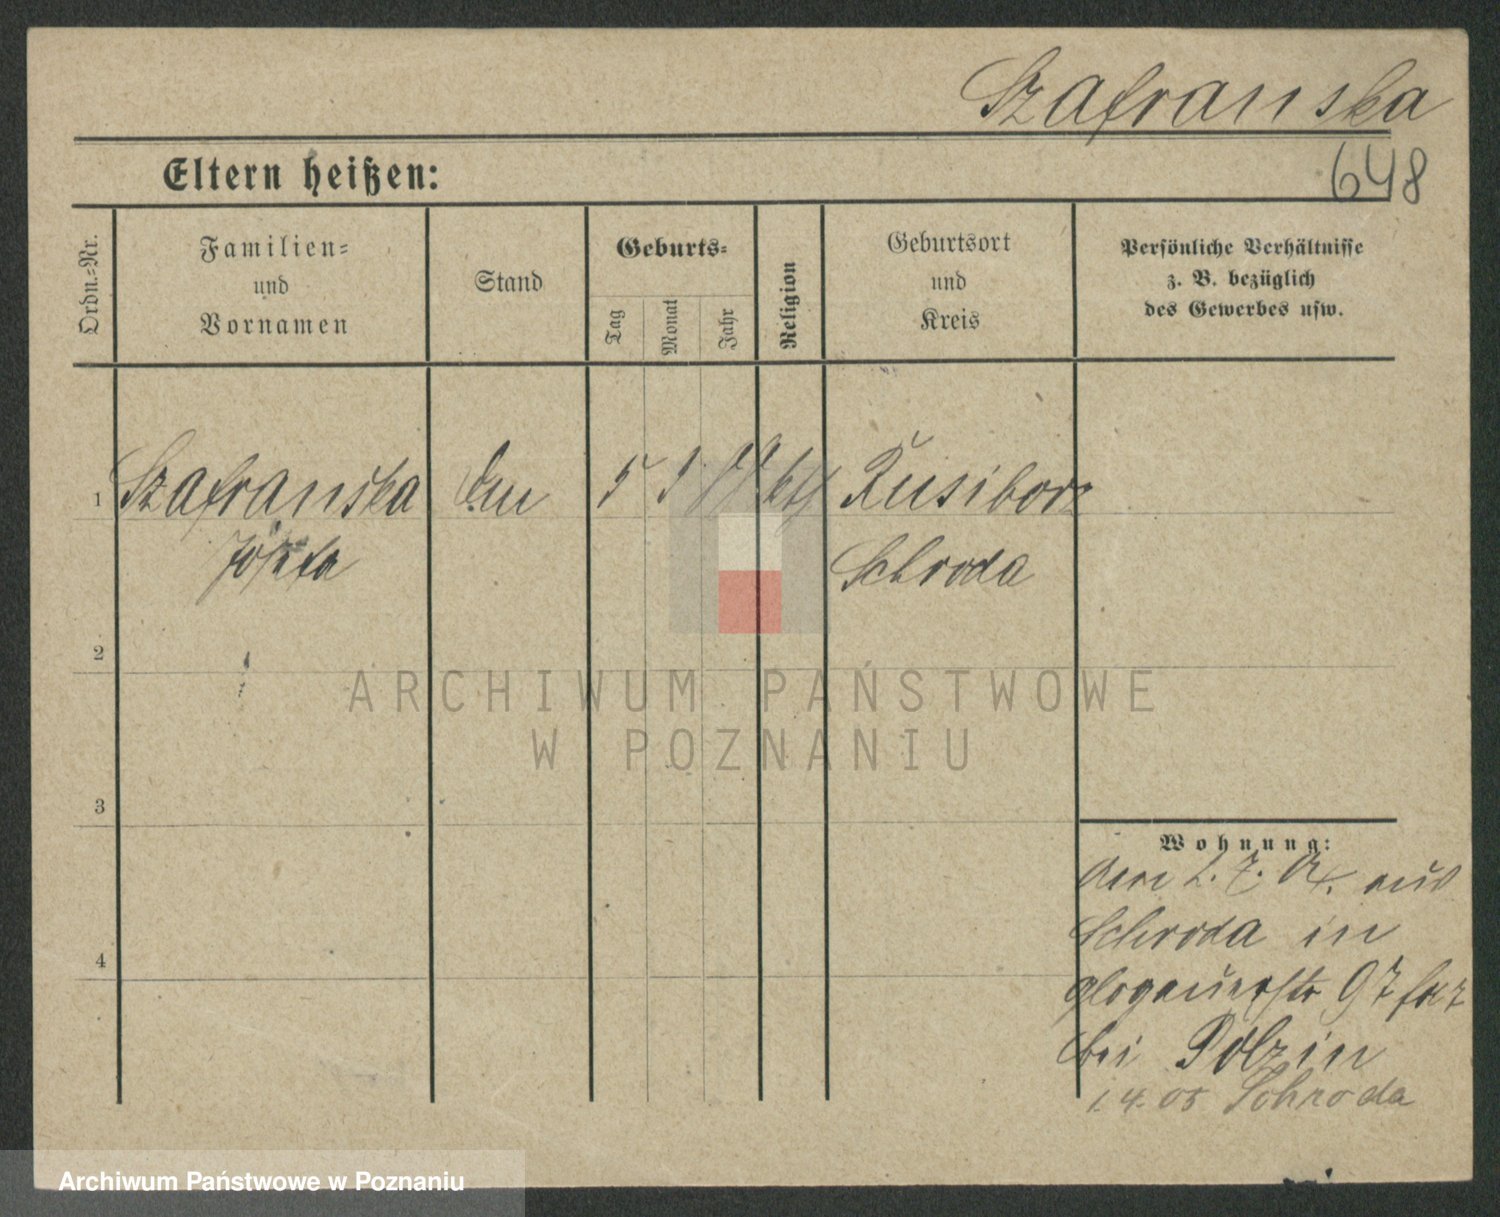 Szafranska
Eltern heißen:
648
Ordn.=Nr.
Familien=
und
Vornamen
Stand
Geburts=
Tag
Monat
Jahr
Religion
Geburtsort
und
Kreis
Persönliche Verhältnisse
z. B. bezüglich
des Gewerbes usw.
1 Szafranska 5 3 kth Rusiborz
Josefa Schroda
2
ARCHIWUM PAŃSTWOWE
W POZNANIU
3
Wohnung:
aus
Schroda in
4
Glogauerstr 97
bei Polzin
1 4. 05 Schroda
Archiwum Państwowe w Poznaniu